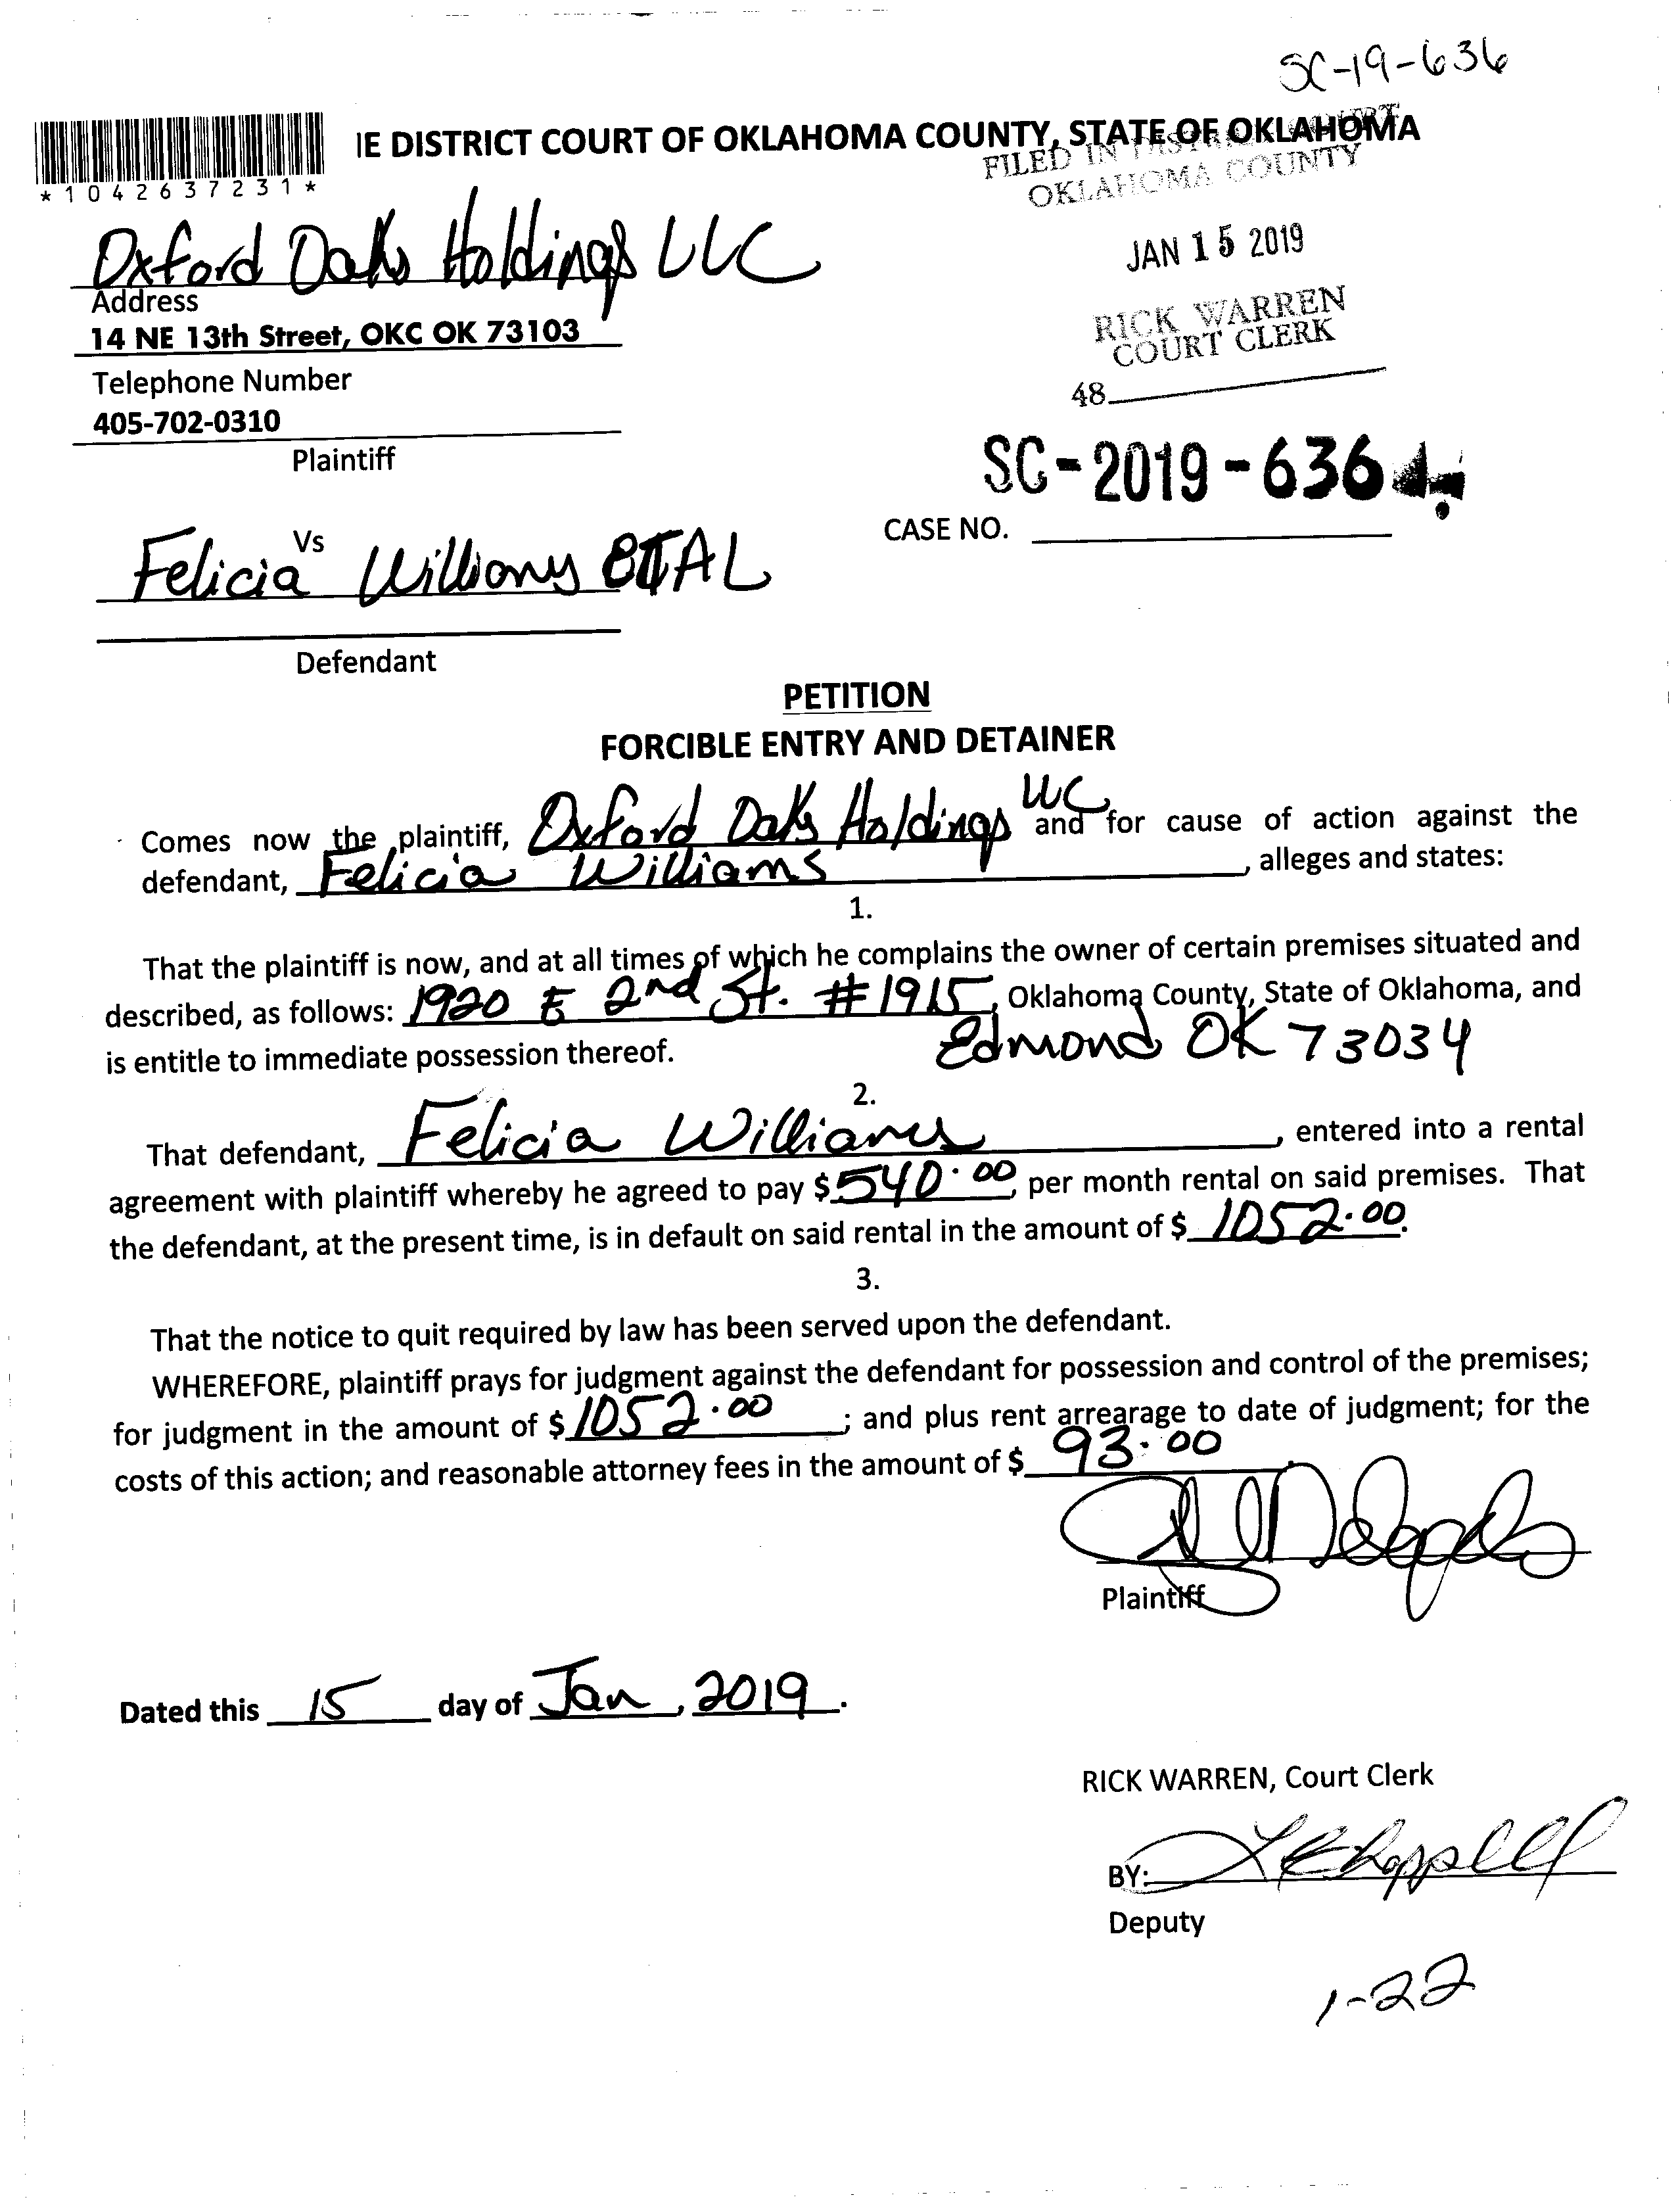 SC-19-636
IE DISTRICT COURT OF OKLAHOMA COUNTY, STATE OF OKLAHOMA
*1042637231*
FILED IN DISTRICT COURT
OKLAHOMA COUNTY
Oxford Oaks Holdings LLC
JAN 15 2019
Address
14 NE 13th Street, OKC OK 73103
RICK WARREN
COURT CLERK
Telephone Number
48
405-702-0310
Plaintiff
SC-2019-636
Vs
CASE NO.
Felicia Williams ETAL
Defendant
PETITION
FORCIBLE ENTRY AND DETAINER
Comes now the plaintiff, Oxford Oaks Holdings LLC and for cause of action against the
defendant, Felicia Williams, alleges and states:
1.
That the plaintiff is now, and at all times of which he complains the owner of certain premises situated and
described, as follows: 1920 E 2nd St. #1915, Oklahoma County, State of Oklahoma, and
is entitle to immediate possession thereof. Edmond OK 73034
2.
That defendant, Felicia Williams, entered into a rental
agreement with plaintiff whereby he agreed to pay $540.00, per month rental on said premises. That
the defendant, at the present time, is in default on said rental in the amount of $ 1052.00.
3.
That the notice to quit required by law has been served upon the defendant.
WHEREFORE, plaintiff prays for judgment against the defendant for possession and control of the premises;
for judgment in the amount of $1052.00; and plus rent arrearage to date of judgment; for the
costs of this action; and reasonable attorney fees in the amount of $ 93.00
Plaintiff
Dated this 15 day of Jan, 2019.
RICK WARREN, Court Clerk
BY:
Deputy
1-22